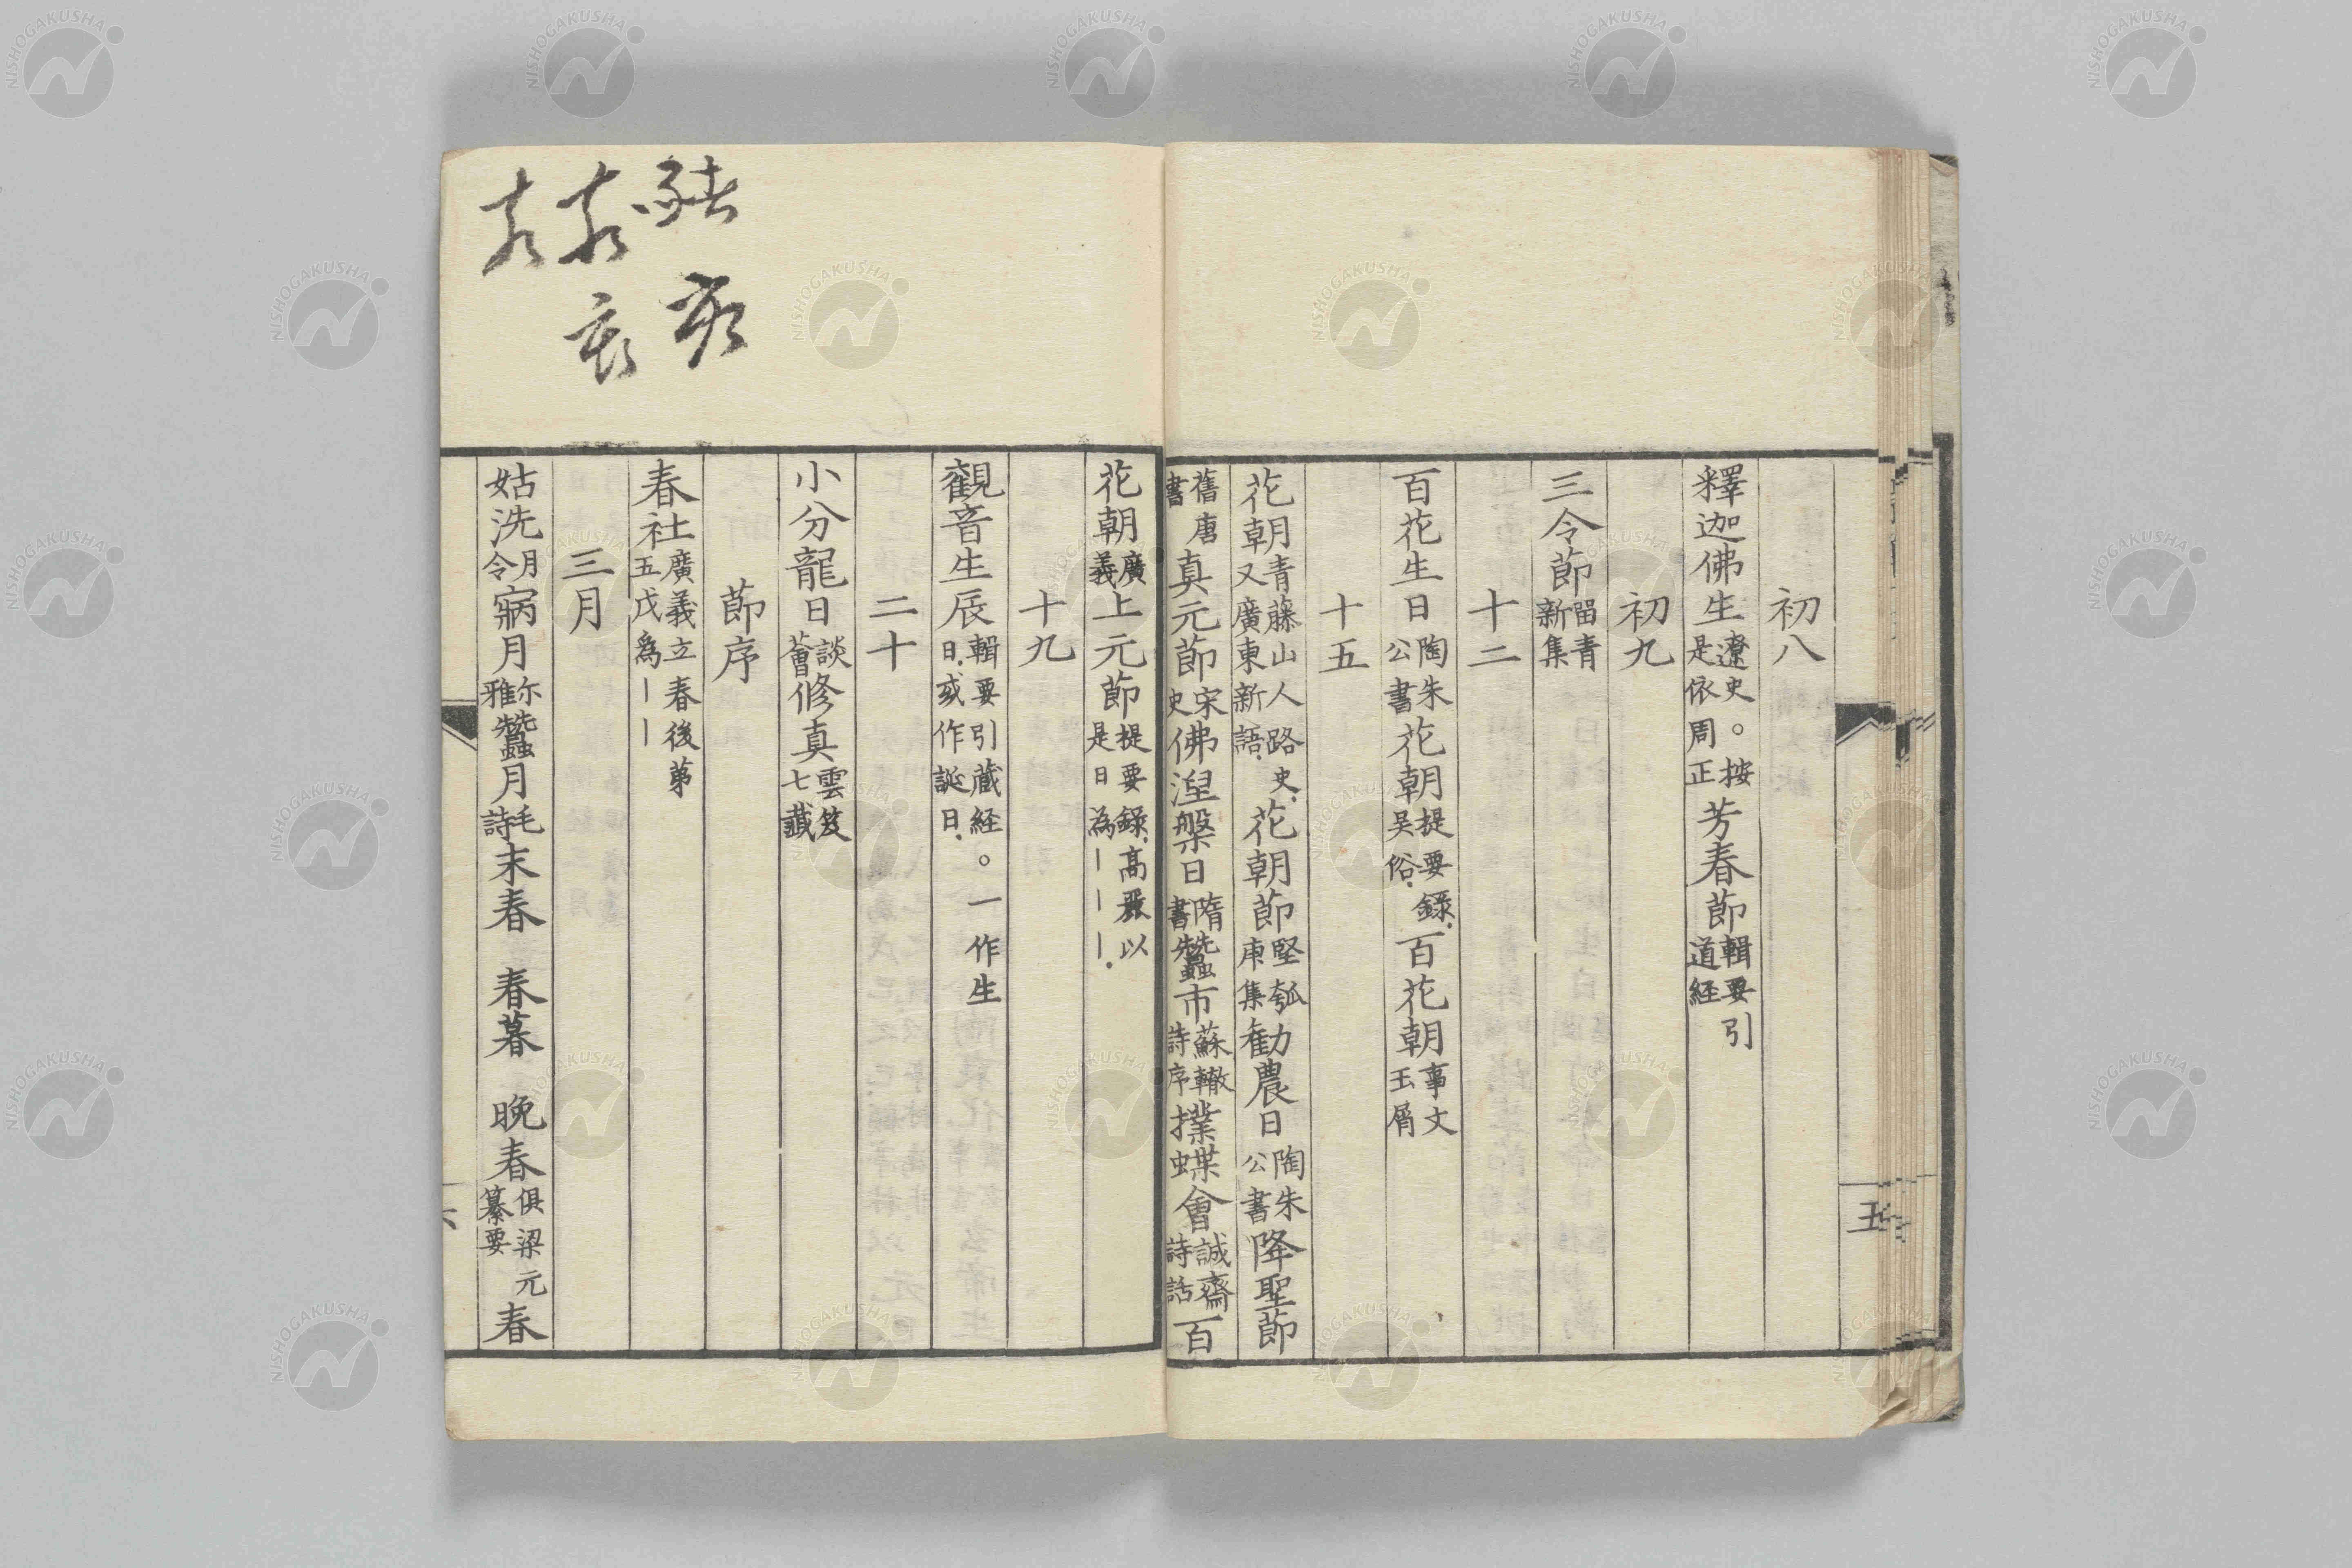 初八
釋迦佛生遼史。按是依周正芳春節輯要引道経
初九
三令節留青新集
十二
百花生日陶朱公書花朝提要録呉俗百花朝事文玉屑
十五
花朝青藤山人路史又廣東新語花朝節堅瓠庚集勸農日陶朱公書降聖節
舊唐書真元節宋史佛涅槃日隋書蠶市蘇轍詩序撲蝶會誠齋詩話百
五
花朝廣義上元節提要録高麗以是日為丨丨丨
十九
觀音生辰輯要引蔵経。一作生日或作誕日
二十
小分龍日談薈修真雲笈七籤
節序
春社廣義立春後第五戊為丨丨
三月
姑洗月令寎月尓雅蠶月毛詩末春 春暮 晩春俱梁元纂要春
六
NISHOGAKUSHA